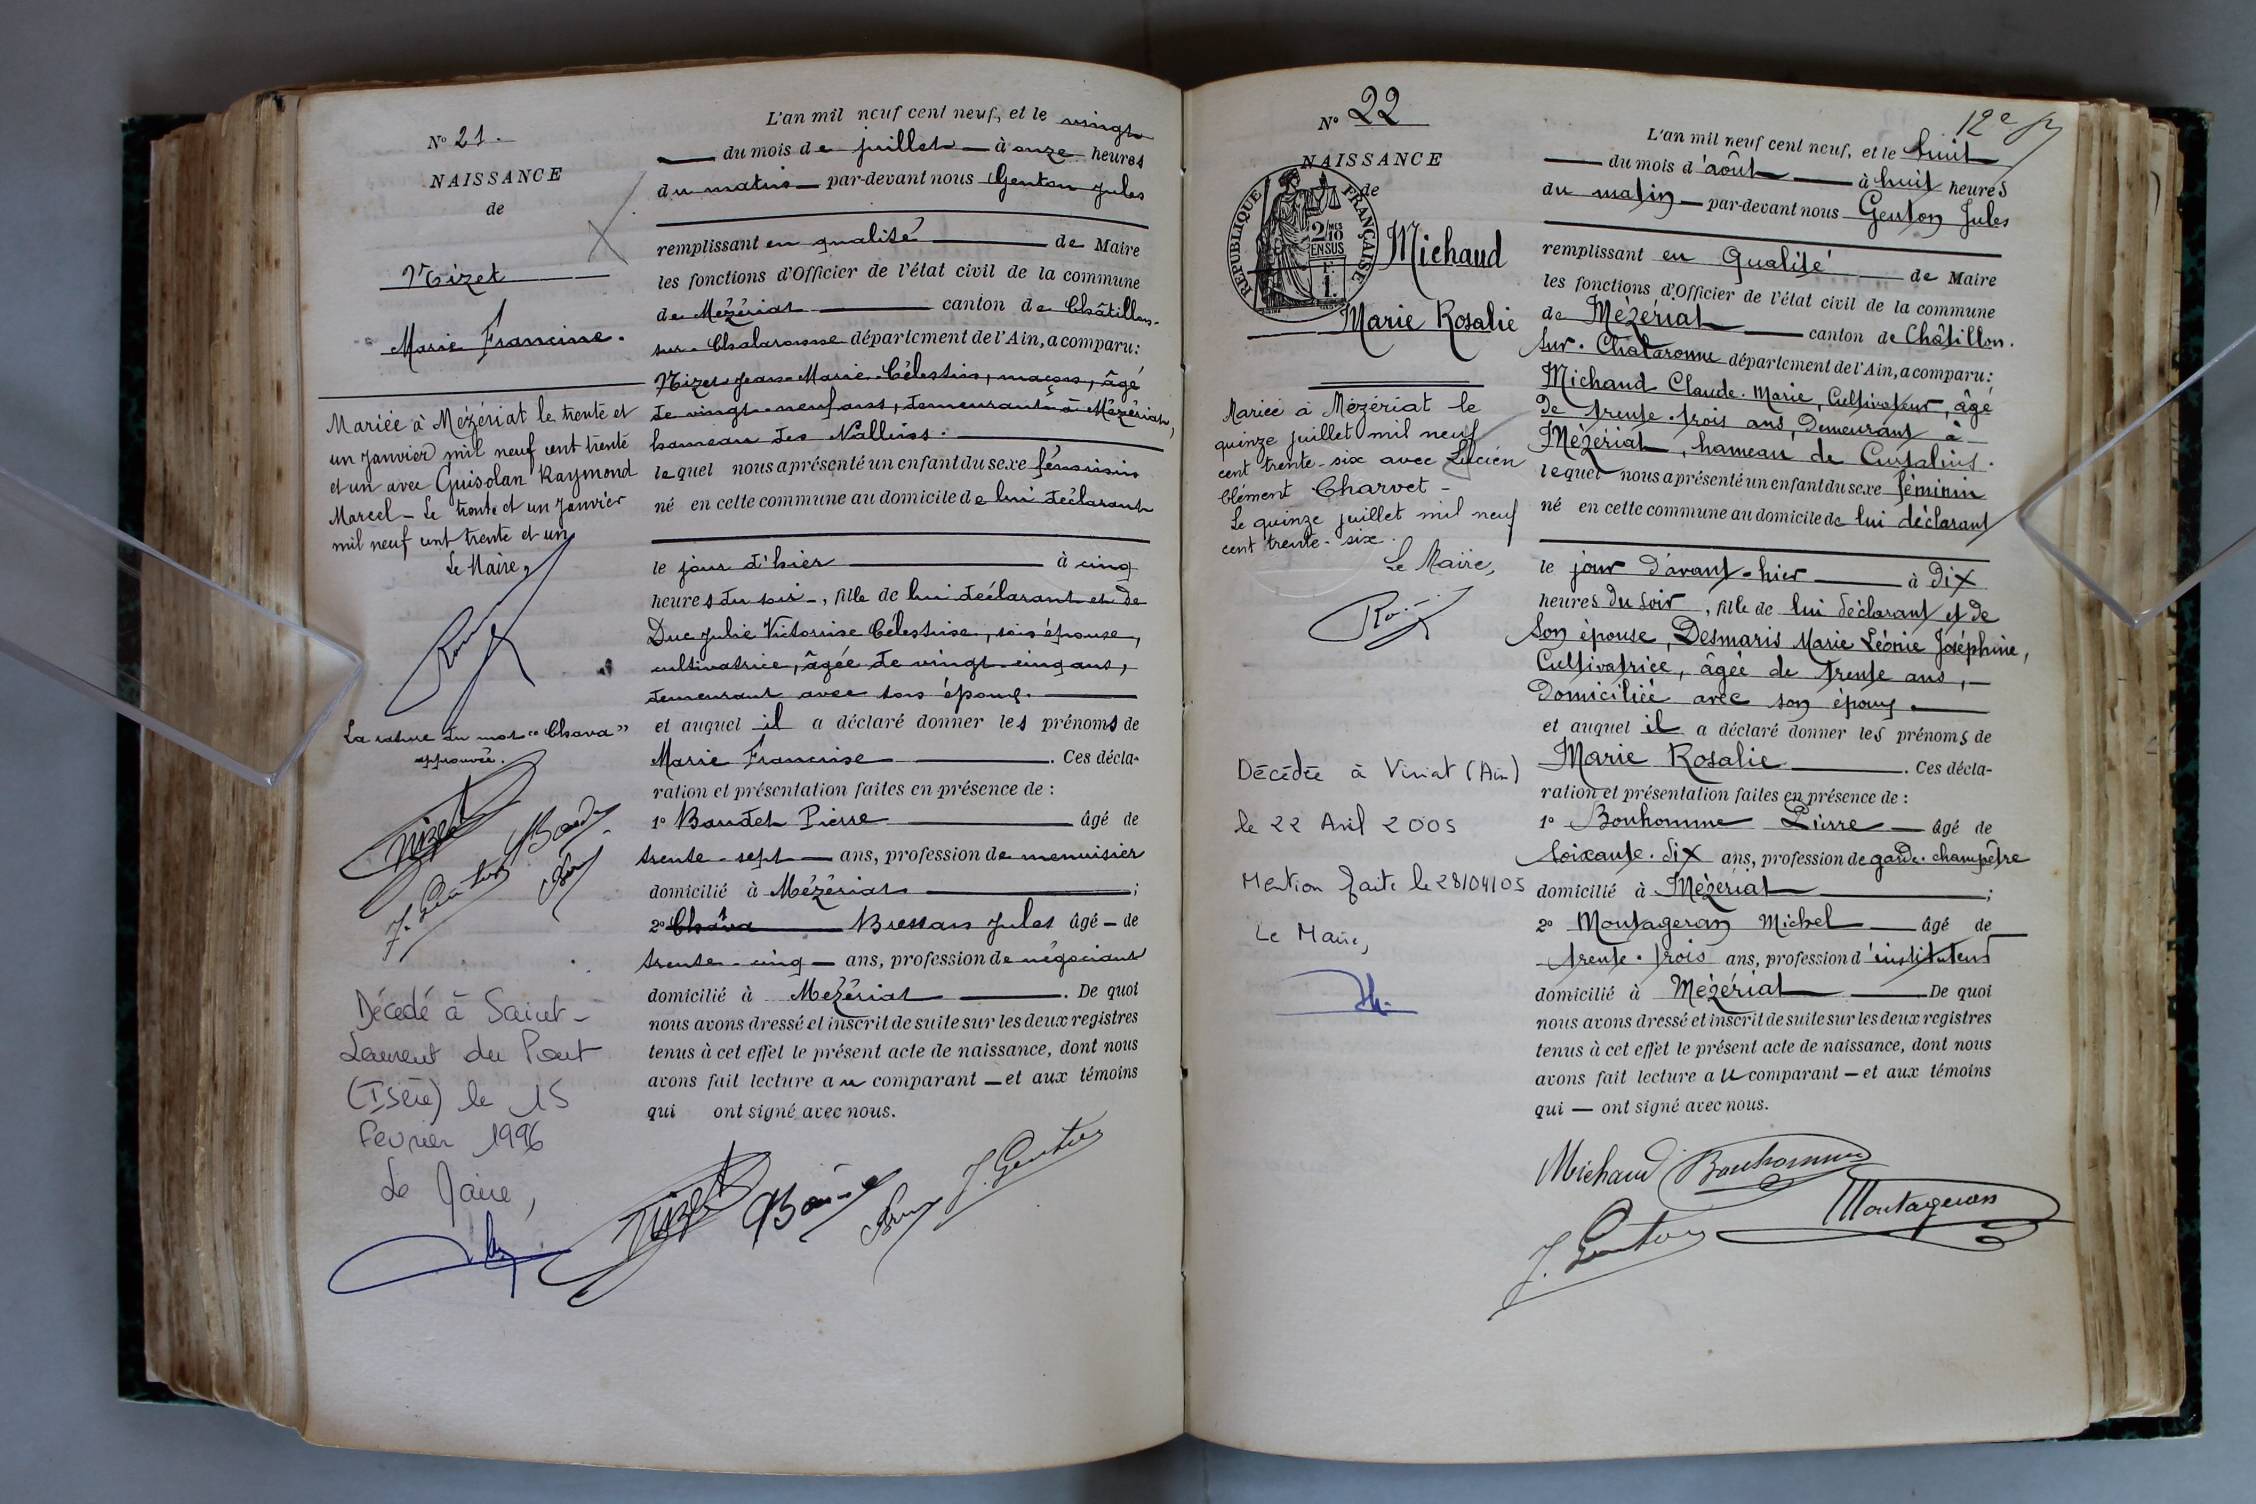 N° 21.
NAISSANCE
de
Nizet
Marie Francine.
Mariée à Mézériat le trente et
un Janvier mil neuf cent trente
et un avec Guisolan Raymond
Marcel - Le trente et un Janvier
mil neuf cent trente et un
Le Maire,
La rature du mot "Chava"
approuvée.
Nizet
J. Genton
Décédé à Saint-
Laurent du Pont
(Isère) le 15
Février 1996
Le Maire,
L'an mil neuf cent neuf, et le vingt
du mois de juillet à onze heures
du matin par-devant nous Genton Jules
remplissant en qualité de Maire
les fonctions d'Officier de l'état civil de la commune
de Mézériat canton de Châtillon-
sur-Chalaronne département de l'Ain, a comparu:
Nizet Jean-Marie-Célestin, maçon, âgé
de vingt-neuf ans, demeurant à Mézériat,
hameau des Nallins.
lequel nous a présenté un enfant du sexe féminin
né en cette commune au domicile de lui déclarant
le jour d'hier à cinq
heures du soir, fille de lui déclarant et de
Duc Julie Victorine Célestine, son épouse,
cultivatrice, âgée de vingt-cinq ans,
demeurant avec son époux.
et auquel il a déclaré donner les prénoms de
Marie Francine. Ces décla-
ration et présentation faites en présence de :
1° Baudet Pierre âgé de
trente-sept ans, profession de menuisier
domicilié à Mézériat ;
2° Chava Bressan Jules âgé de
trente-cinq ans, profession de négociant
domicilié à Mézériat. De quoi
nous avons dressé et inscrit de suite sur les deux registres
tenus à cet effet le présent acte de naissance, dont nous
avons fait lecture au comparant et aux témoins
qui ont signé avec nous.
Nizet J. Genton
N° 22
NAISSANCE
de
REPUBLIQUE FRANÇAISE
2/10 MES
EN SUS
1 F.
Michaud
Marie Rosalie
Mariée à Mézériat le
quinze juillet mil neuf
cent trente-six avec Lucien
Clément Charvet -
Le quinze juillet mil neuf
cent trente-six.
Le Maire,
Décédée à Viriat (Ain)
le 22 Avril 2005
Mention faite le 28/04/05
Le Maire,
12e
L'an mil neuf cent neuf, et le huit
du mois d'août à huit heures
du matin par-devant nous Genton Jules
remplissant en qualité de Maire
les fonctions d'Officier de l'état civil de la commune
de Mézériat canton de Châtillon.
sur-Chalaronne département de l'Ain, a comparu:
Michaud Claude-Marie, Cultivateur, âgé
de trente-trois ans, demeurant à
Mézériat, hameau de
lequel nous a présenté un enfant du sexe féminin
né en cette commune au domicile de lui déclarant
le jour d'avant-hier à dix
heures du soir, fille de lui déclarant et de
son épouse, Desmaris Marie Léonie Joséphine,
Cultivatrice, âgée de trente ans,
domiciliée avec son époux.
et auquel il a déclaré donner les prénoms de
Marie Rosalie. Ces décla-
ration et présentation faites en présence de :
1° Bonhomme Pierre âgé de
soixante-dix ans, profession de garde-champêtre
domicilié à Mézériat ;
2° Montageron Michel âgé de
trente-trois ans, profession d'instituteur
domicilié à Mézériat De quoi
nous avons dressé et inscrit de suite sur les deux registres
tenus à cet effet le présent acte de naissance, dont nous
avons fait lecture au comparant et aux témoins
qui ont signé avec nous.
Michaud Bonhomme
J. Genton Montageron